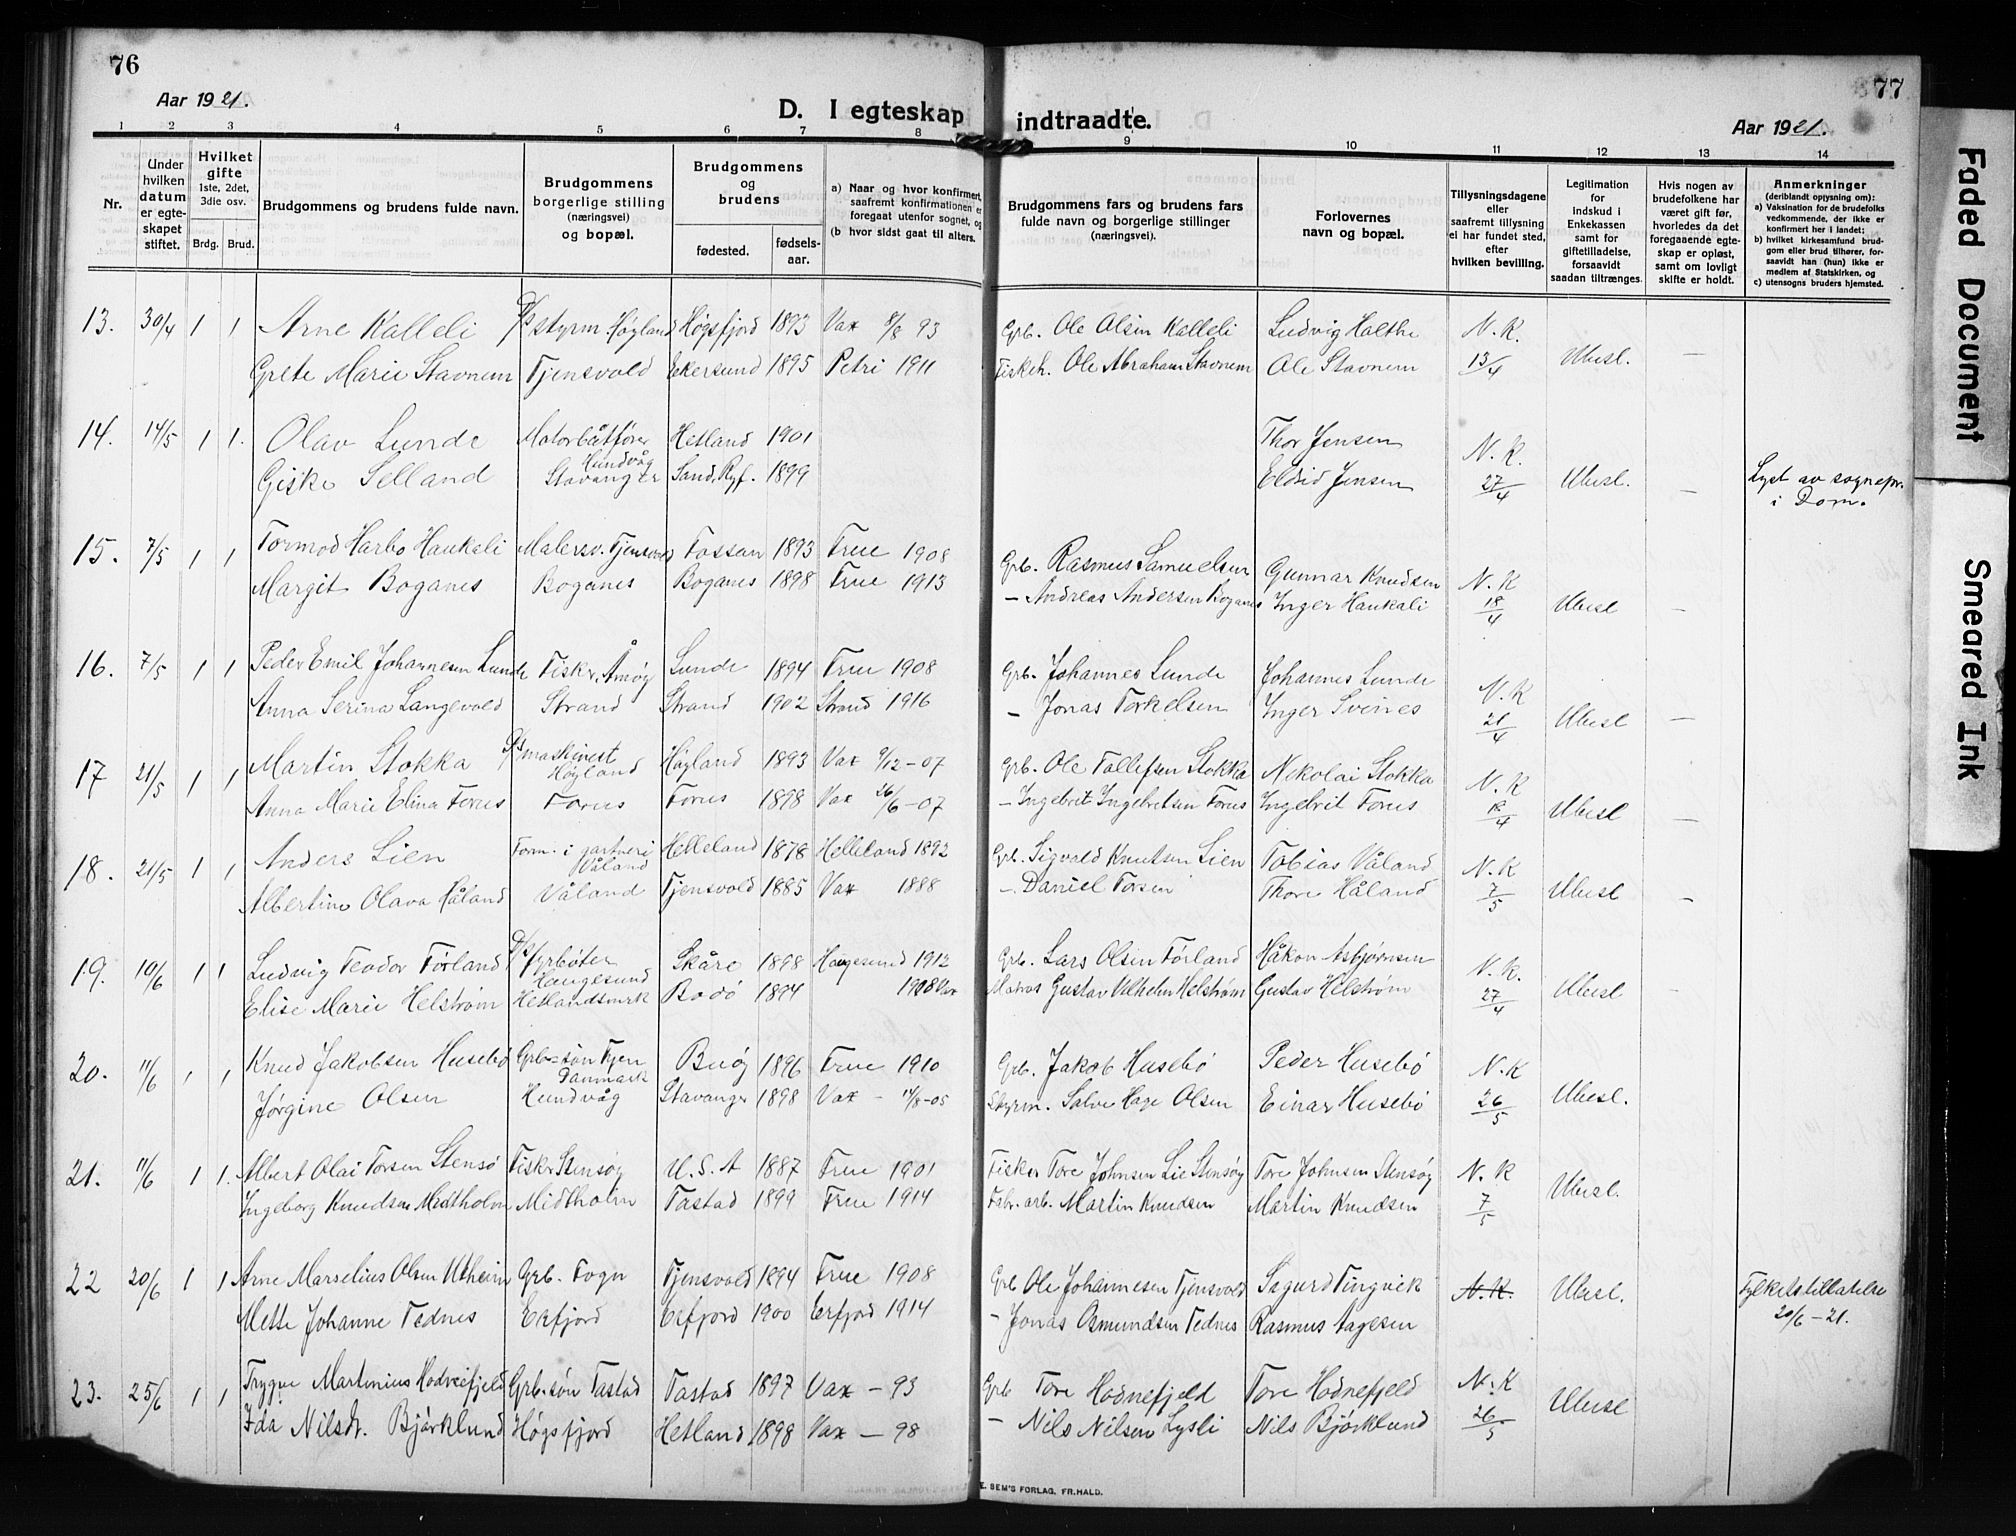 76
77
Aar 1921.
D. I egteskap indtraadte.
Aar 1921.
1 2 3 4 5 6 7 8 9 10 11 12 13 14
Nr.
Under hvilken datum er egteskapet stiftet.
Hvilket gifte 1ste, 2det, 3die osv.
Brdg. Brud.
Brudgommens og brudens fulde navn.
Brudgommens borgerlige stilling (næringsvei) og bopæl.
Brudgommens og brudens
fødested. fødsels-aar.
a) Naar og hvor konfirmert, saafremt konfirmationen er foregaat utenfor sognet, og
(b hvor sidst gaat til alters.
Brudgommens fars og brudens fars fulde navn og borgerlige stillinger (næringsvei).
Forlovernes navn og bopæl.
Tillysningsdagene eller saafremt tillysning ei har fundet sted, efter hvilken bevilling.
Legitimation for Indskud i Enkekassen samt for giftetilladelse, forsaavidt saadan tiltrænges.
Hvis nogen av brudefolkene har været gift før, hvorledes da det foregaaende egteskap er opløst, samt om lovligt skifte er holdt.
Anmerkninger (deriblandt opjysning om):
a) Vaksination for de brudefolks vedkommende, der ikke er konfirmert her i landet;
b) hvilket kirkesamfund brudgom eller brud tilhører, forsaavidt han (hun) ikke er medlem af Statskirken, og
c) utensogns bruders hjemsted.
13. 30/4 1 1 Arne Kalleli styrm Høyland Høgsfjord 1893 Vax 8/8 93 Grb. Ole Olsen Kalleli Ludvig Halthe N.K.
Grete Marie Stavnem Tjensvold Ekersund 1895 Petri 1911 Fiskeh. Ole Abraham Stavnem Ole Stavnem 13/4 Ubesl. —
14. 14/5 1 1. Olav Lunde Motorbåtfører Hundvåg Hetland 1901 Thor Jensen N.K.
Giske Selland Stavanger Sand, Ryf. 1899 Eldrid Jensen 27/4 Ubesl. — Lyst av sognepr. i Dom.
15. 7/5 1 1 Tormod Harbo Haukali Malersv. Tjensvold Fossan 1893 Frue 1908 Grb. Rasmus Samuelsen Gunnar Knudsen N.K
Margit Boganes Boganes Boganes 1898 Frue 1913 — Andreas Andersen Boganes Inger Haukali 18/4 Ubesl —
16. 7/5 1 1 Peder Emil Johannesen Lunde Fisker, Åmøy Lunde 1894 Frue 1908 Grb. Johannes Lunde Johannes Lunde N.K
Anna Serina Langevold Strand Strand 1902 Strand 1916 — Jonas Torkelsen Inger Svines 21/4 Ubesl —
17 21/5 1 1 Martin Stokka maskinest Høyland Høyland 1893 Vax 9/12-07 Grb. Ole Tollefsen Stokka Nikolai Stokka N.K
Anna Marie Elina Forus Forus Forus 1898 Vax 26/6-07 — Ingebrit Ingebretsen Forus Ingebrit Forus 18/4 Ubesl —
18. 21/5 1 1 Anders Lien Form. i gartneri Våland Helleland 1878 Helleland 1892 Grb. Sigvald Knutsen Lien Tobias Våland N.K
Albertine Olava Håland Våland Tjensvold 1885 Vax 1888 — Daniel Torsen Thore Håland 7/5 Ubesl —
19. 10/6 1 1 Ludvig Teodor Førland fyrbøter Haugesund Skåre 1898 Haugesund 1912 Grb. Lars Olsen Førland Håkon Asbjørnsen N.K.
Elise Marie Helstrøm Hetlandsmrk Bodø 1894 1908 Vax Matros Gustav Vilhelm Helstrøm Gustav Helstrøm 27/4 Ubesl
20. 11/6 1 1 Knud Jakobsen Husebø Grb-søn Tjen Danmark Buøy 1896 Frue 1910 Grb. Jakob Husebø Peder Husebø N.K
Jørgine Olsen Hundvåg Stavanger 1898 Vax - 14/8-05 Styrm. Salve Hage Olsen Einar Husebø 26/5 Ubesl.
21. 11/6 1 1. Albert Olai Torsen Stensø Fisker Stensøy U.S.A 1887 Frue 1901 Fisker Tore Johnsen Lie Stensøy Tore Johnsen Stensøy N.K
Ingeborg Knudsen Midtholm Midtholm Tastad 1899 Frue 1914 Fabr.arb. Martin Knudsen Martin Knudsen 7/5 Ubesl.
22 20/6 1 1 Arne Marselius Olsen Utheim Grb. Fogn Tjensvold 1894 Frue 1908 Grb Ole Johannesen Tjensvold Sigurd Tingvik N.K. Ubesl. Fylketstillatelse
Mette Johanne Tednes Erfjord Erfjord 1900 Erfjord 1914 — Jonas Osmundsen Tednes Rasmus Aagesen 20/6-21.
23. 25/6 1 1 Trygve Martinius Hodnefjeld Grb-søn Tastad Tastad 1897 Vax — 93 Grb Tore Hodnefjeld Tore Hodnefjeld N.K
Ida Nilsdt. Bjørklund Høgsfjord Hetland 1898 Vax — 98 — Nils Nilsen Lysli Nils Bjørklund 26/5 Ubesl
E. SEM'S FORLAG, FR.HALD.
Faded Document
Smeared Ink